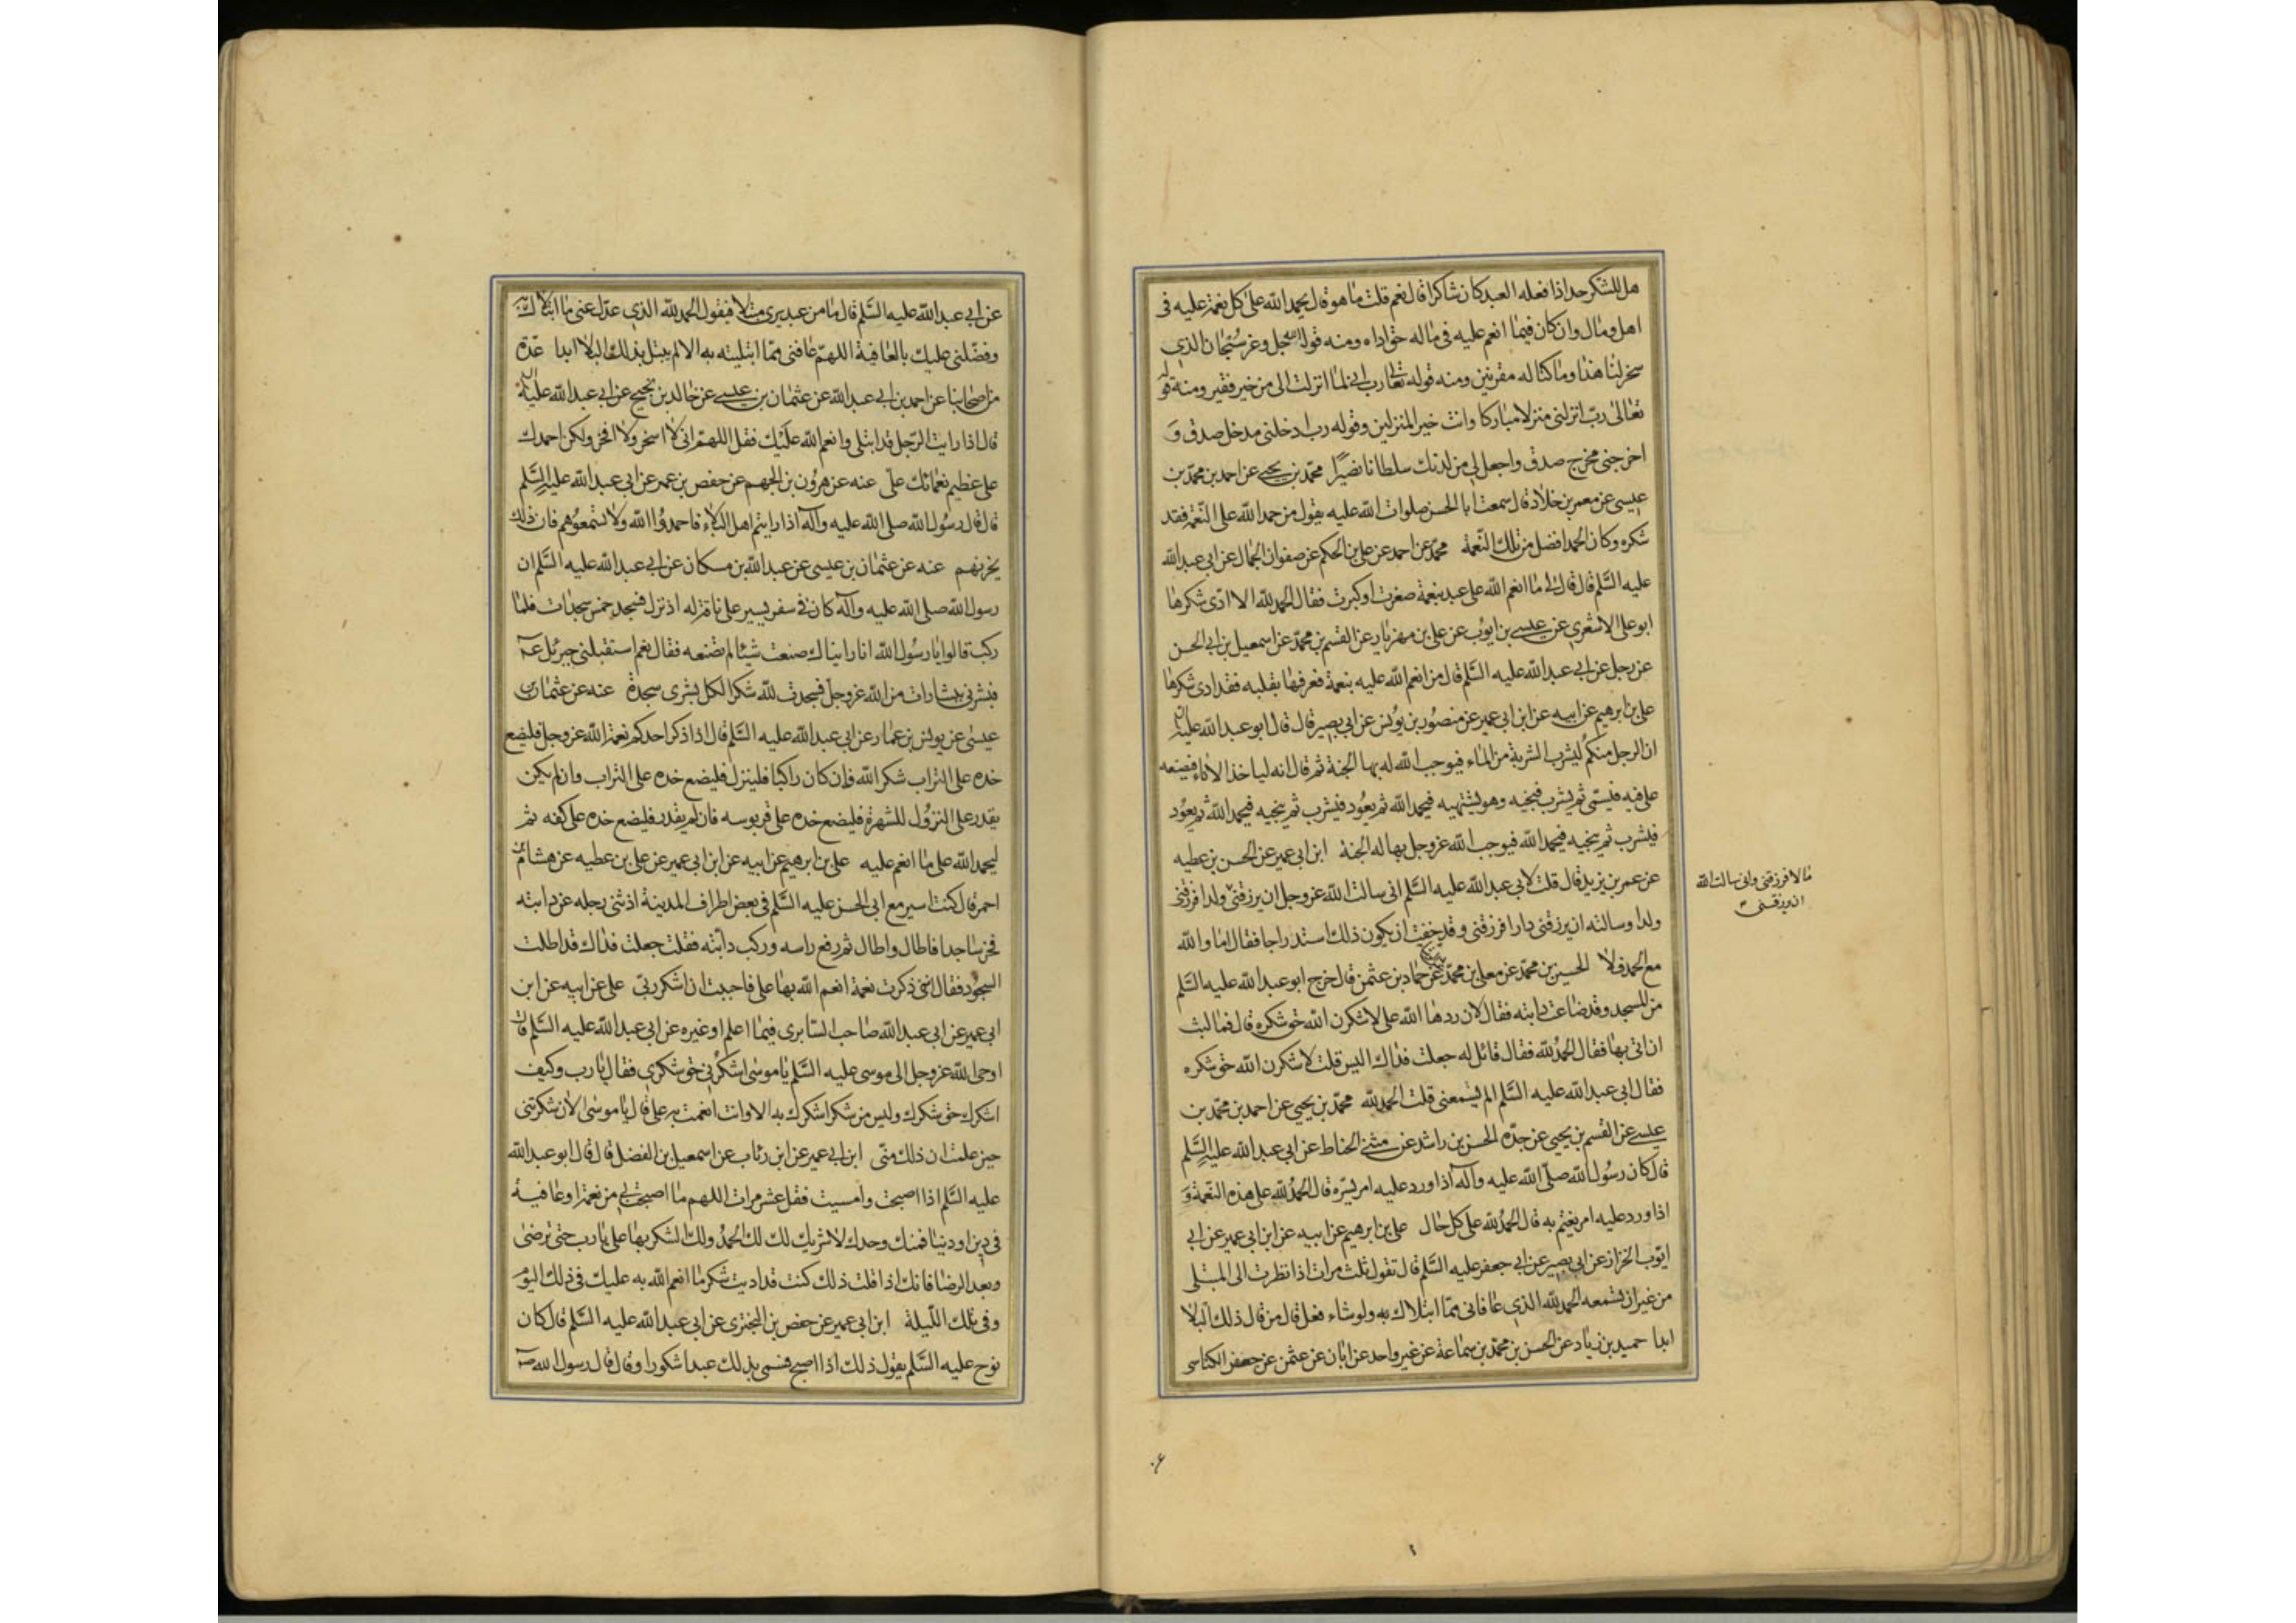 هل للشكر حد اذا فعله العبد كان شاكرا قال نعم قلت ما هو قال يحمد الله على كل نعمة عليه فى
اهل ومال وان كان فيما انعم عليه فى ماله حق اداه ومنه قوله جل وعز سبحان الذي
سخر لنا هذا وما كنا له مقرنين ومنه قوله تعا رب انى لما انزلت الى من خير فقير ومنه قوله
تعالى رب انزلنى منزلا مباركا وانت خير المنزلين وقوله رب ادخلنى مدخل صدق و
اخرجنى مخرج صدق واجعل لى من لدنك سلطانا نصيرا محمد بن يحيى عن احمد بن محمد بن
عيسى عن معمر بن خلاد قال سمعت ابا الحسن صلوات الله عليه يقول من حمد الله على النعمة فقد
شكره وكان الحمد افضل من تلك النعمة محمد عن احمد عن على بن الحكم عن صفوان الجمال عن ابى عبد الله
عليه السلم قال قال لى ما انعم الله على عبد بنعمة صغرت او كبرت فقال الحمد لله الا ادى شكرها
ابو على الاشعري عن عيسى بن ايوب عن على بن مهزيار عن القسم بن محمد عن اسمعيل بن ابى الحسن
عن رجل عن ابى عبد الله عليه السلم قال من انعم الله عليه بنعمة فعرفها بقلبه فقد ادى شكرها
على بن ابرهيم عن ابيه عن ابن ابى عمير عن منصور بن يونس عن ابى بصير قال قال ابو عبد الله عليه
ان الرجل منكم ليشرب الشربة من الماء فيوجب الله له بها الجنة ثم قال انه لياخذ الاناء فيضعه
على فيه فيسمى ثم يشرب فينحيه وهو يشتهيه فيحمد الله ثم يعود فيشرب ثم ينحيه فيحمد الله ثم يعود
فيشرب ثم ينحيه فيحمد الله فيوجب الله عز وجل بها له الجنة ابن ابى عمير عن الحسن بن عطيه
عن عمر بن يزيد قال قلت لابى عبد الله عليه السلم انى سالت الله عز وجل ان يرزقنى ولدا فرزقنى
ولدا وسالته ان يرزقنى دارا فرزقنى وقد خفت ان يكون ذلك استدراجا فقال اما والله
مع الحمد فلا الحسين بن محمد عن معلى بن محمد عن حماد بن عثمن قال خرج ابو عبد الله عليه السلم
من المسجد وقد ضاعت دابته فقال لان ردها الله على لاشكرن الله حق شكره قال فما لبث
ان اتى بها فقال الحمد لله فقال قائل له جعلت فداك اليس قلت لاشكرن الله حق شكره
فقال ابى عبد الله عليه السلم الم تسمعنى قلت الحمد لله محمد بن يحيى عن احمد بن محمد بن
عيسى عن القسم بن يحيى عن جده الحسن بن راشد عن مثنى الحناط عن ابى عبد الله عليه السلم
قال كان رسول الله صلى الله عليه وآله اذا ورد عليه امر يسره قال الحمد لله على هذه النعمة و
اذا ورد عليه امر يغتم به قال الحمد لله على كل حال على بن ابرهيم عن ابيه عن ابن ابى عمير عن ابى
ايوب الخزاز عن ابى بصير عن ابى جعفر عليه السلم قال تقول ثلث مرات اذا نظرت الى المبتلى
من غير ان تسمعه الحمد لله الذى عافانى مما ابتلاك به ولو شاء فعل قال من قال ذلك البلا
ابدا حميد بن زياد عن الحسن بن محمد بن سماعة عن غير واحد عن ابان عن عثمن عن حفص الكناسى
مالا فرزقنى وانى سالت الله
ان يرزقنى
عن ابى عبد الله عليه السلم قال ما من عبد يرى مبتلا فيقول الحمد لله الذى عدل عنى ما ابتلاك
وفضلنى عليك بالعافية اللهم عافنى مما ابتليته به الا لم يبتل بذلك البلا ابدا عدة
من اصحابنا عن احمد بن ابى عبد الله عن عثمان بن عيسى عن خالد بن نجيح عن ابى عبد الله عليه
قال اذا رايت الرجل قد ابتلى وانعم الله عليك فقل اللهم انى لا اسخر ولا افخر ولكن احمدك
على عظيم نعمائك على عنه عن هرون بن الجهم عن حفص بن عمر عن ابى عبد الله عليه السلم
قال قال رسول الله صلى الله عليه وآله اذا رايتم اهل البلاء فاحمدوا الله ولا تسمعوهم فان ذلك
يحزنهم عنه عن عثمان بن عيسى عن عبد الله بن مسكان عن ابى عبد الله عليه السلم ان
رسول الله صلى الله عليه وآله كان فى سفر يسير على ناقة له اذ نزل فسجد خمس سجدات فلما
ركب قالوا يا رسول الله انا رايناك صنعت شيئا لم تصنعه فقال نعم استقبلنى جبرئل
فبشرنى ببشارات من الله عز وجل فسجدت لله شكرا لكل بشرى سجدة عنه عن عثمان بن
عيسى عن يونس بن عمار عن ابى عبد الله عليه السلم قال اذا ذكر احدكم نعمة الله عز وجل فليضع
خده على التراب شكر الله فان كان راكبا فلينزل فليضع خده على التراب وان لم يكن
يقدر على النزول للشهرة فليضع خده على قربوسه فان لم يقدر فليضع خده على كفه ثم
ليحمد الله على ما انعم عليه على بن ابرهيم عن ابيه عن ابن ابى عمير عن على بن عطيه عن هشام بن
احمر قال كنت اسير مع ابى الحسن عليه السلم فى بعض اطراف المدينة اذ ثنى رجله عن دابته
فخر ساجدا فاطال واطال ثم رفع راسه وركب دابته فقلت جعلت فداك قد اطلت
السجود فقال اننى ذكرت نعمة انعم الله بها على فاحببت ان اشكر ربى على عن ابيه عن ابن
ابى عمير عن ابى عبد الله صاحب السابرى فيما اعلم او غيره عن ابى عبد الله عليه السلم قال
اوحى الله عز وجل الى موسى عليه السلم يا موسى اشكرنى حق شكرى فقال يا رب وكيف
اشكرك حق شكرك وليس من شكر اشكرك به الا وانت انعمت به على قال يا موسى الان شكرتنى
حين علمت ان ذلك منى ابن ابى عمير عن ابن رئاب عن اسمعيل بن الفضل قال قال ابو عبد الله
عليه السلم اذا اصبحت وامسيت فقل عشر مرات اللهم ما اصبحت بى من نعمة او عافية
فى دين او دنيا فمنك وحدك لا شريك لك لك الحمد ولك الشكر بها على يا رب حتى ترضى
وبعد الرضا فانك اذا قلت ذلك كنت قد اديت شكر ما انعم الله به عليك فى ذلك اليوم
وفى تلك الليلة ابن ابى عمير عن حفص بن البخترى عن ابى عبد الله عليه السلم قال كان
نوح عليه السلم يقول ذلك اذا اصبح فسمى بذلك عبدا شكورا وقال قال رسول الله